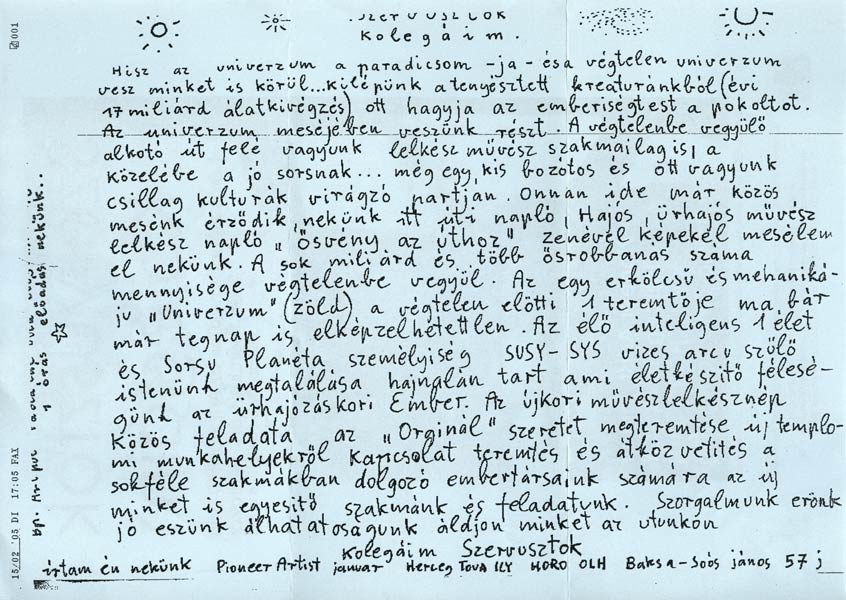 Szervusztok
Kolegáim.
Hisz az univerzum a paradicsom -ja- ésa végtelen univerzum
vesz minket is körül...kilépünk atenyésztett kreaturánkból (évi
17 miliárd álatkivégzés) ott hagyja az emberiségtest a pokoltot.
Az univerzum meséjében veszünk részt. A végtelenbe vegyülő
alkotó út felé vagyunk lelkész művész szakmailag is, a
közelébe a jó sorsnak... még egy kis bozótos és ott vagyunk
csillag kulturák virágzó partján. Onnan ide már közös
mesénk érződik nekünk itt úti napló, Hajos, ürhajós művész
lelkész napló "ösvény az úthoz" zenével képekel mesélem
el nekünk. A sok miliárd és több ösrobbanas szama
mennyisége végtelenbe vegyül. Az egy erkölcsü és mehaniká-
ju "Univerzum" (zöld) a végtelen elötti 1 teremtője ma bár
már tegnap is elképzelhetettlen. Az élő inteligens 1 élet
és Sorsu Planéta személyiség SUSY-SYS vizes arcu szülő
istenünk megtalálása hajnalán tart ami életkészitő félesé-
günk az ürhajózáskori Ember. Az újkori művészlelkésznép
közös feladata az "Orginál" szeretet megteremtése új templo-
mi munkahelyekről kapcsolat teremtés és átközvetités a
sokféle szakmákban dolgozó embertársaink számára az új
minket is egyesitő szakmánk és feladatunk. Szorgalmunk erőnk
jó eszünk álhatatoságunk áldjon minket az utunkon
Kolegáim Szervusztok
irtam én nekünk Pioneer Artist januar Herceg Tova ILY HORO OLH Baksa-Soós jános 57 j
1 órás elöadás nekünk..
15/02 '05 DI 17:05 FAX
001